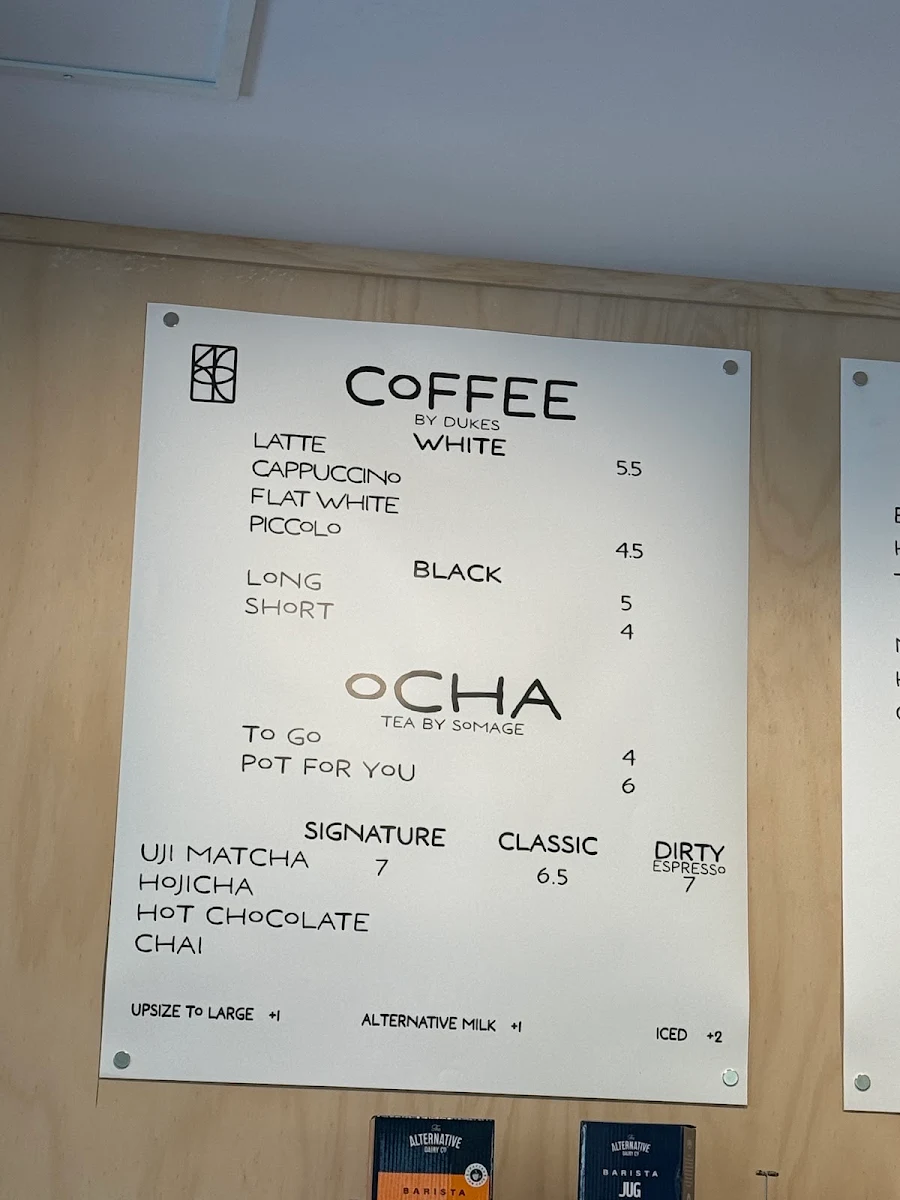 COFFEE
BY DUKES
WHITE
LATTE 5.5
CAPPUCCINO
FLAT WHITE
PICCOLO 4.5
BLACK
LONG 5
SHORT 4
OCHA
TEA BY SOMAGE
TO GO 4
POT FOR YOU 6
SIGNATURE CLASSIC DIRTY
ESPRESSO
UJI MATCHA 7 6.5 7
HOJICHA
HOT CHOCOLATE
CHAI
UPSIZE TO LARGE +1 ALTERNATIVE MILK +1 ICED +2
The
ALTERNATIVE
DAIRY CO
BARISTA
ALTERNATIVE
DAIRY CO
BARISTA
JUG